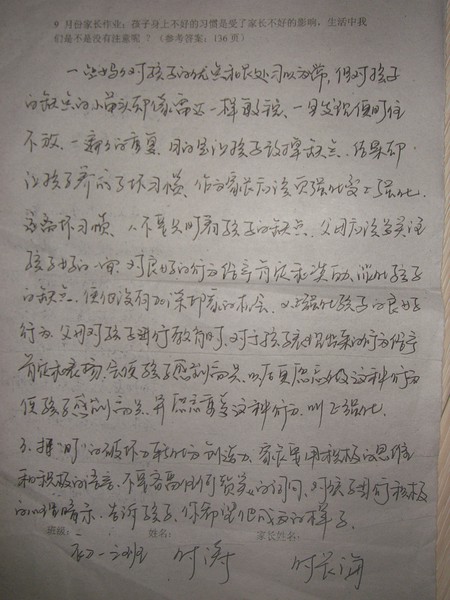 9 月份家长作业：孩子身上不好的习惯是受了家长不好的影响，生活中我
们是不是没有注意呢 ？（参考答案：136 页）
一些妈妈对孩子的优点和长处习以为常，但对孩子
的缺点的小苗头却像雷达一样敏锐、一旦发现便盯住
不放、一遍遍的重复、目的是让孩子改掉缺点、结果却
让孩子养成了坏习惯、作为家长应该
坏习惯、不要只盯着孩子的缺点、父母应该多关注
孩子好的一面、对良好的行为给予肯定和
的缺点、使他没有加深印象的机会、正强化孩子的良好
行为、父母对孩子进行教育时、对于孩子表现出来的行为给予
肯定和表扬、会使孩子感到高兴、以后更愿意做这种行为
使孩子感到高兴、并愿意重复这种行为、叫正强化、
3、把"盯"的破坏力转化为创造力、家长要用积极的思维
和积极的语言、不要容易用任何负面的词、对孩子进行积极
的心理暗示、告诉孩子、你希望他成为的样子、
班级： 姓名： 家长姓名：
初一二班 时涛 时长海